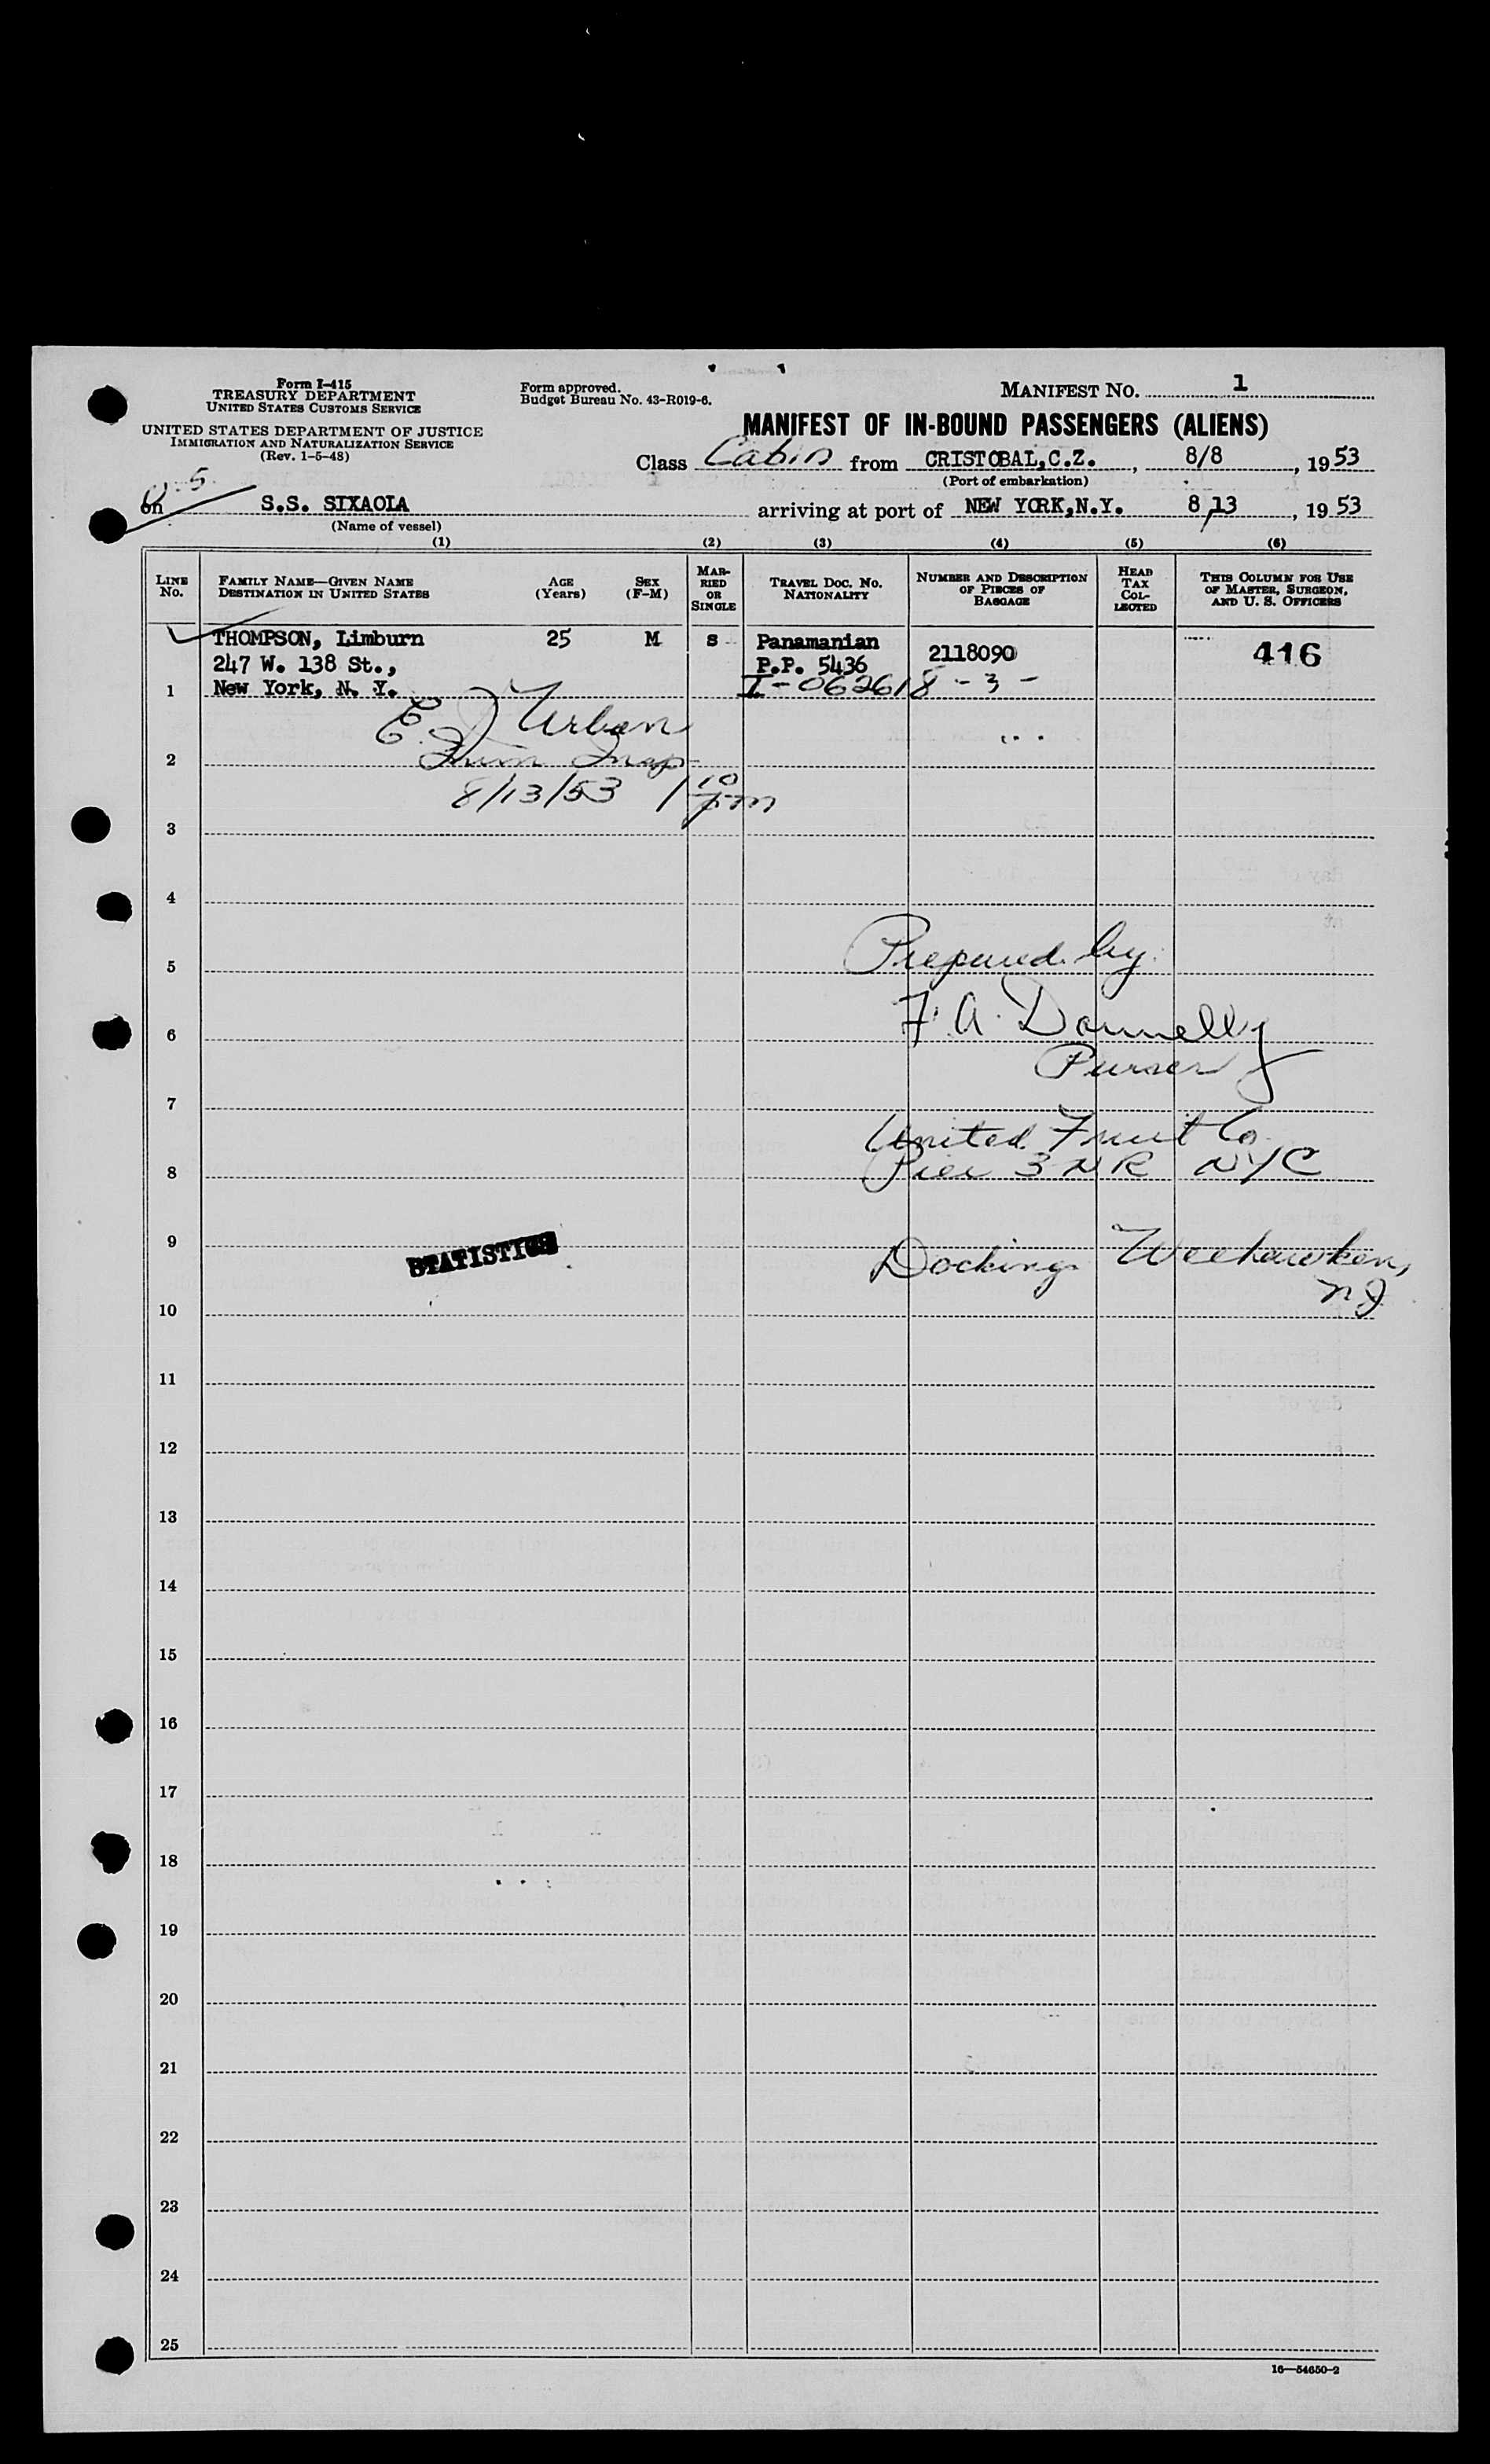 Form I-415
TREASURY DEPARTMENT
UNITED STATES CUSTOMS SERVICE
UNITED STATES DEPARTMENT OF JUSTICE
IMMIGRATION AND NATURALIZATION SERVICE
(Rev. 1-5-48)
Form approved.
Budget Bureau No. 43-R019-6.
MANIFEST NO. 1
MANIFEST OF IN-BOUND PASSENGERS (ALIENS)
Class Cabin from CRISTOBAL,C.Z., 8/8, 1953
(Port of embarkation)
on S.S. SIXAOLA arriving at port of NEW YORK,N.Y. 8,13, 1953
(Name of vessel)
(1) (2) (3) (4) (5) (6)
LINE No. FAMILY NAME—GIVEN NAME DESTINATION IN UNITED STATES AGE (Years) SEX (F-M) MARRIED OR SINGLE TRAVEL DOC. NO. NATIONALITY NUMBER AND DESCRIPTION OF PIECES OF BAGGAGE HEAD TAX COLLECTED THIS COLUMN FOR USE OF MASTER, SURGEON, AND U. S. OFFICERS
THOMPSON, Limburn 25 M S Panamanian 2118090 416
247 W. 138 St., P.P. 5436
1 New York, N. Y. I-062618 - 3 -
E. J Urban
2 Imm Insp
8/13/53 1 10 pm
3
4
5 Prepared by
6 F. A. Donnelly
Purser
7
United Fruit Co.
8 Pier 3 NR NYC
9 STATISTICS Docking Weehawken,
NJ
10
11
12
13
14
15
16
17
18
19
20
21
22
23
24
25
16—54650-2